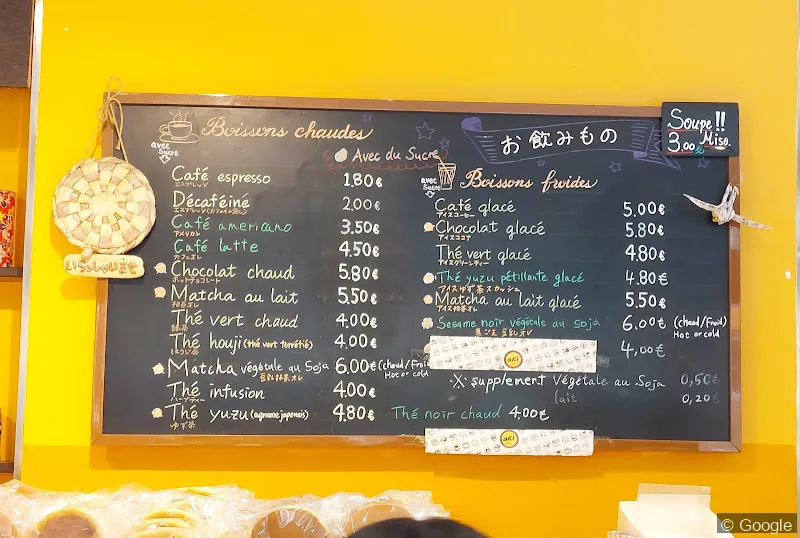 Boissons chaudes
avec Sucre
Avec du Sucre
Café espresso 1.80€
エスプレッソ
Décaféiné 2.00€
Café americano 3.50€
アメリカン
Café latte 4.50€
カフェオレ
Chocolat chaud 5.80€
ホットチョコレート
Matcha au lait 5.50€
抹茶オレ
Thé vert chaud 4.00€
緑茶
Thé houji (thé vert torréfié) 4.00€
ほうじ茶
Matcha végétale au Soja 6.00€ (chaud/Froid)
豆乳抹茶オレ Hot or cold
Thé infusion 4.00€
ハーブティー
Thé yuzu (agrume japonais) 4.80€
ゆず茶
いらっしゃいませ
お飲みもの
Soupe!!
Miso.
3.00€
avec Sucre
Boissons froides
Café glacé 5.00€
アイスコーヒー
Chocolat glacé 5.80€
アイスココア
Thé vert glacé 4.80€
アイスグリーンティー
Thé yuzu pétillante glacé 4.80€
アイスゆず茶スカッシュ
Matcha au lait glacé 5.50€
アイス抹茶オレ
Sesame noir végétale au soja 6.00€ (chaud/Froid)
黒ごま豆乳オレ Hot or cold
aki 4,00€
※ supplement Végétale au Soja 0,50€
lait 0,20€
Thé noir chaud 4.00€
aki
© Google